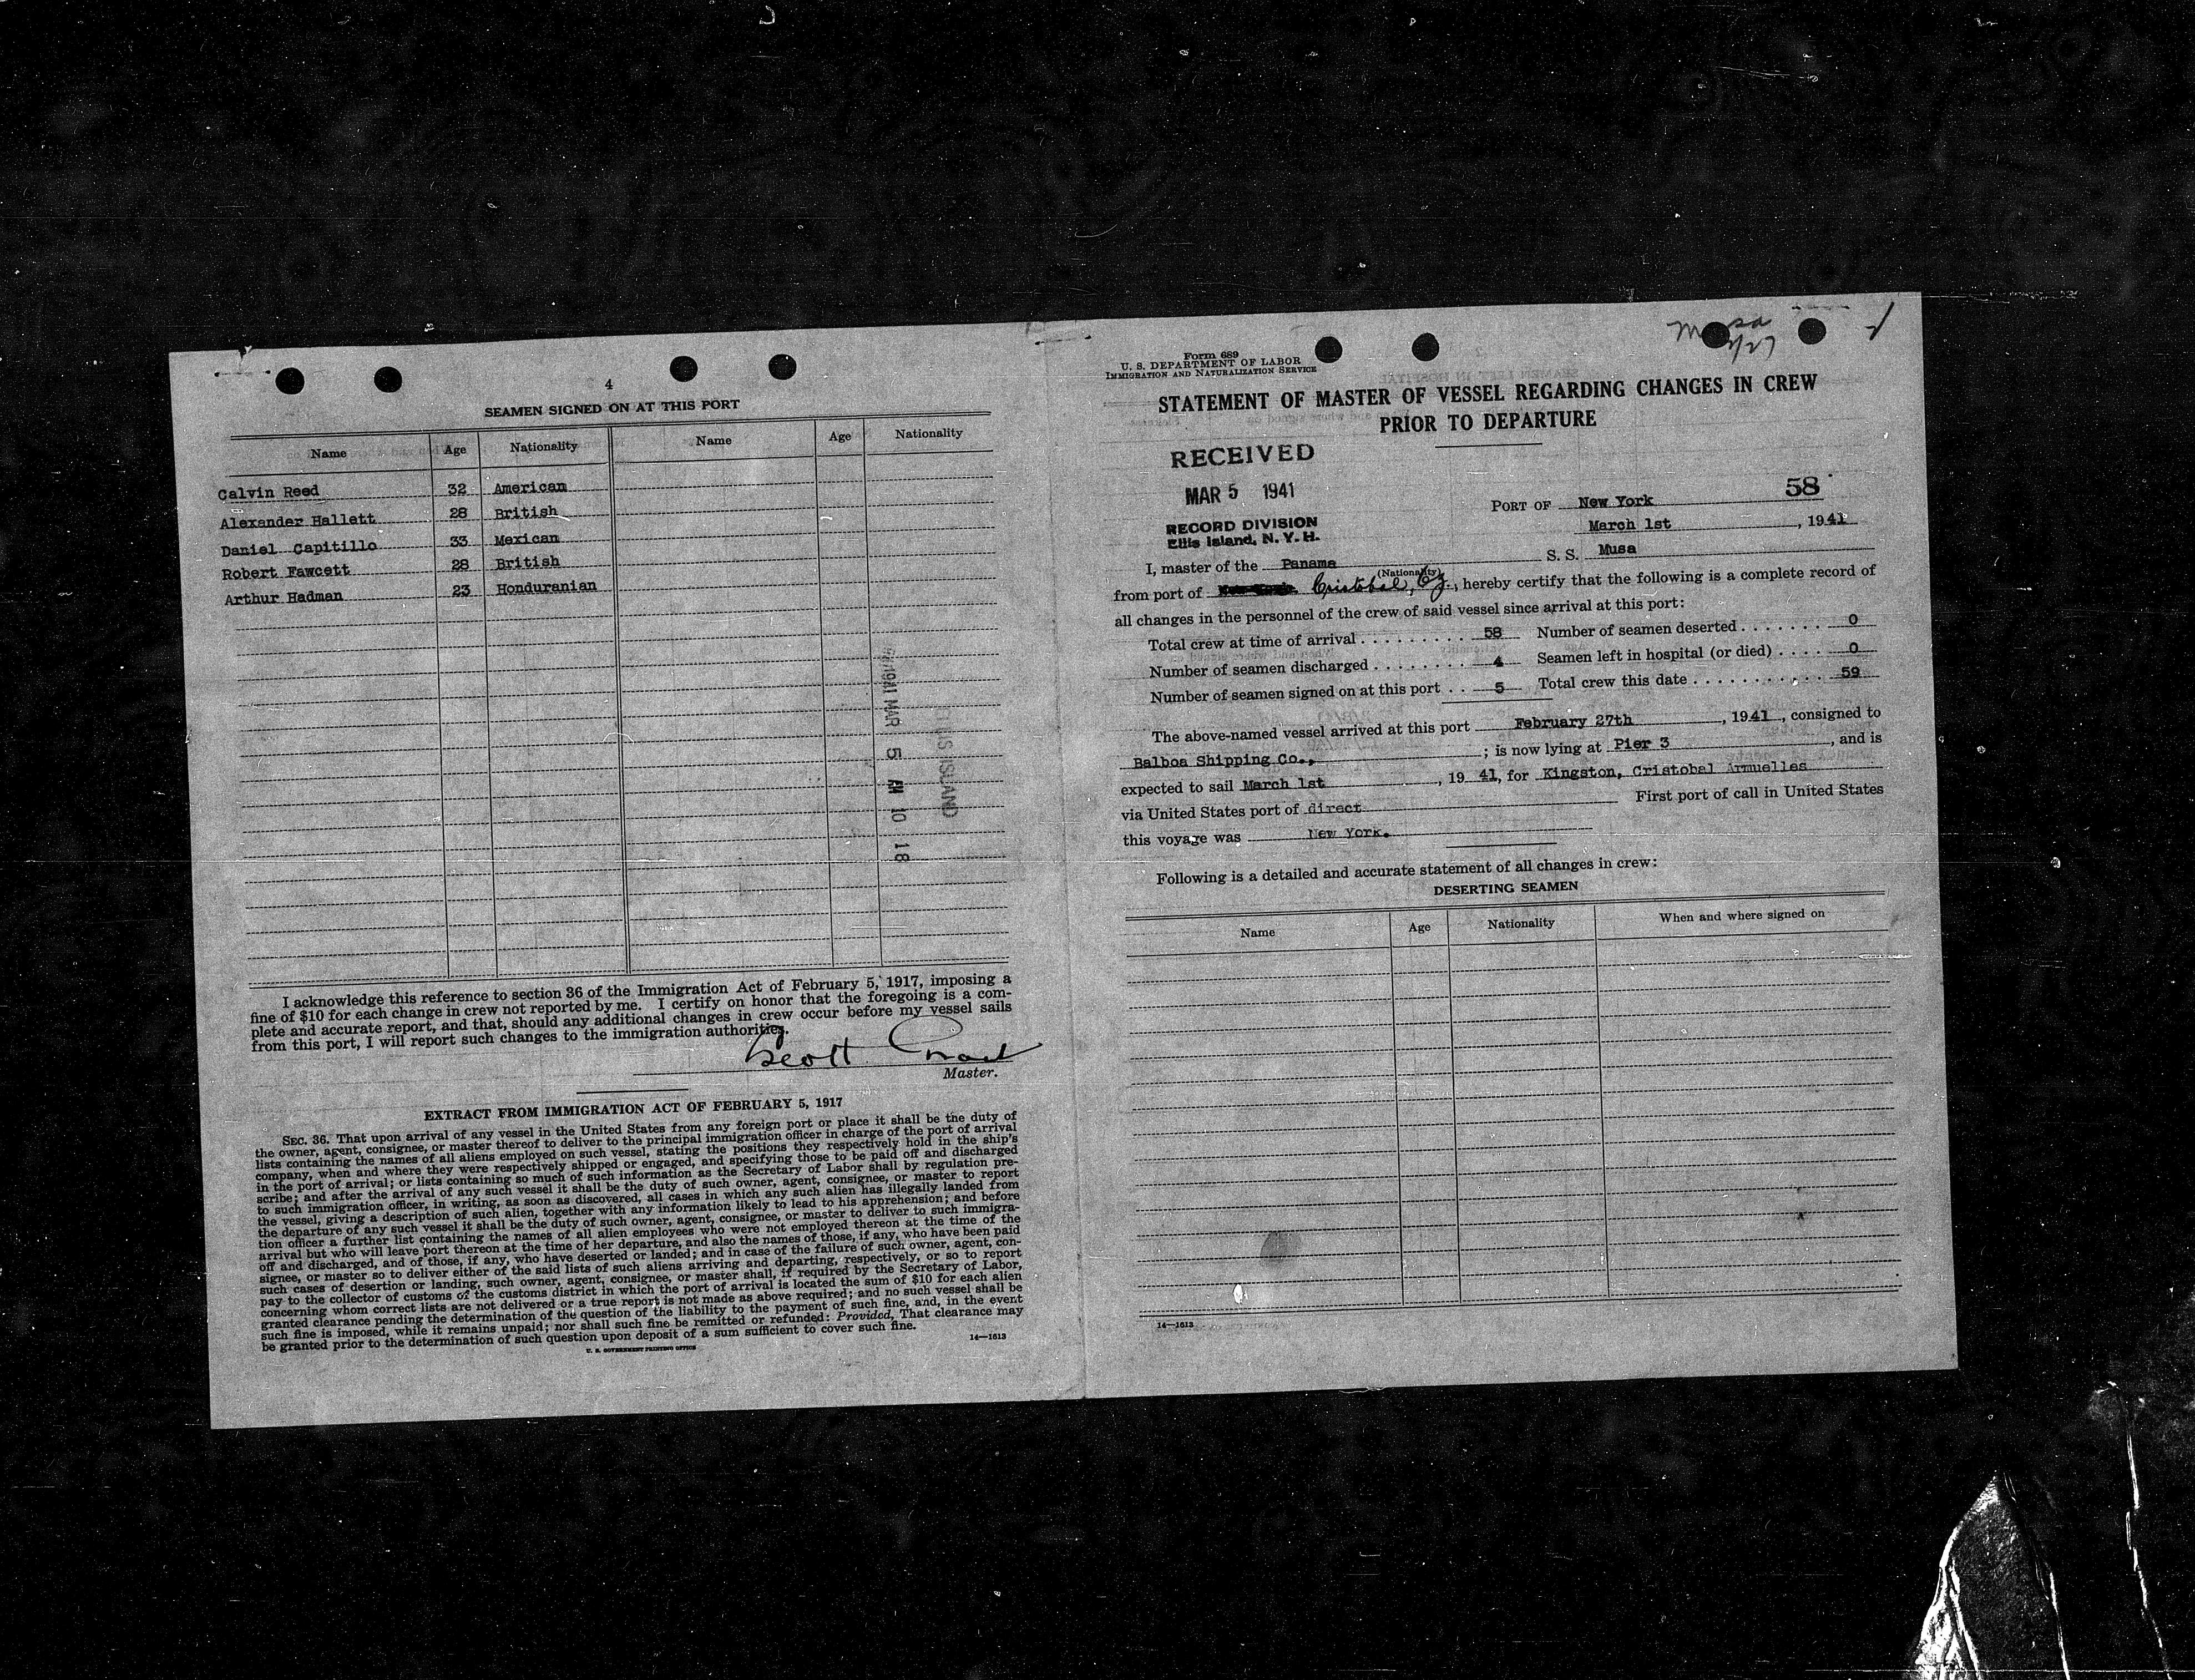 4
SEAMEN SIGNED ON AT THIS PORT
Name Age Nationality Name Age Nationality
Calvin Reed 32 American
Alexander Hallett 28 British
Daniel Capitillo 33 Mexican
Robert Fawcett 28 British
Arthur Hadman 23 Honduranian
1941 MAR 5 AM 10 18
ELLIS ISLAND
I acknowledge this reference to section 36 of the Immigration Act of February 5, 1917, imposing a
fine of $10 for each change in crew not reported by me. I certify on honor that the foregoing is a com-
plete and accurate report, and that, should any additional changes in crew occur before my vessel sails
from this port, I will report such changes to the immigration authorities.
Scott
Master.
EXTRACT FROM IMMIGRATION ACT OF FEBRUARY 5, 1917
SEC. 36. That upon arrival of any vessel in the United States from any foreign port or place it shall be the duty of
the owner, agent, consignee, or master thereof to deliver to the principal immigration officer in charge of the port of arrival
lists containing the names of all aliens employed on such vessel, stating the positions they respectively hold in the ship's
company, when and where they were respectively shipped or engaged, and specifying those to be paid off and discharged
in the port of arrival; or lists containing so much of such information as the Secretary of Labor shall by regulation pre-
scribe; and after the arrival of any such vessel it shall be the duty of such owner, agent, consignee, or master to report
to such immigration officer, in writing, as soon as discovered, all cases in which any such alien has illegally landed from
the vessel, giving a description of such alien, together with any information likely to lead to his apprehension; and before
the departure of any such vessel it shall be the duty of such owner, agent, consignee, or master to deliver to such immigra-
tion officer a further list containing the names of all alien employees who were not employed thereon at the time of the
arrival but who will leave port thereon at the time of her departure, and also the names of those, if any, who have been paid
off and discharged, and of those, if any, who have deserted or landed; and in case of the failure of such owner, agent, con-
signee, or master so to deliver either of the said lists of such aliens arriving and departing, respectively, or so to report
such cases of desertion or landing, such owner, agent, consignee, or master shall, if required by the Secretary of Labor,
pay to the collector of customs of the customs district in which the port of arrival is located the sum of $10 for each alien
concerning whom correct lists are not delivered or a true report is not made as above required; and no such vessel shall be
granted clearance pending the determination of the question of the liability to the payment of such fine, and, in the event
such fine is imposed, while it remains unpaid; nor shall such fine be remitted or refunded: Provided, That clearance may
be granted prior to the determination of such question upon deposit of a sum sufficient to cover such fine.
14—1613
U. S. GOVERNMENT PRINTING OFFICE
Musa
2/27
Form 689
U. S. DEPARTMENT OF LABOR
IMMIGRATION AND NATURALIZATION SERVICE
STATEMENT OF MASTER OF VESSEL REGARDING CHANGES IN CREW
PRIOR TO DEPARTURE
RECEIVED
MAR 5 1941
RECORD DIVISION
Ellis Island, N. Y. H.
58
PORT OF New York
March 1st, 1941
I, master of the Panama S. S. Musa
(Nationality)
from port of Cristobal, Cz., hereby certify that the following is a complete record of
all changes in the personnel of the crew of said vessel since arrival at this port:
Total crew at time of arrival 58 Number of seamen deserted 0
Number of seamen discharged 4 Seamen left in hospital (or died) 0
Number of seamen signed on at this port 5 Total crew this date 59
The above-named vessel arrived at this port February 27th, 1941, consigned to
Balboa Shipping Co., ; is now lying at Pier 3, and is
expected to sail March 1st, 1941, for Kingston, Cristobal Armuelles
via United States port of direct First port of call in United States
this voyage was New York.
Following is a detailed and accurate statement of all changes in crew:
DESERTING SEAMEN
Name Age Nationality When and where signed on
14—1613